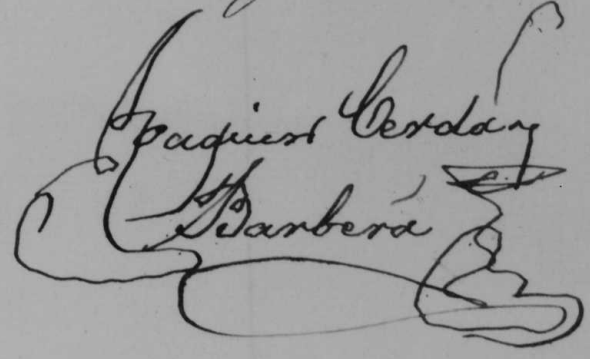 Joaquin Cerdán
Barberá